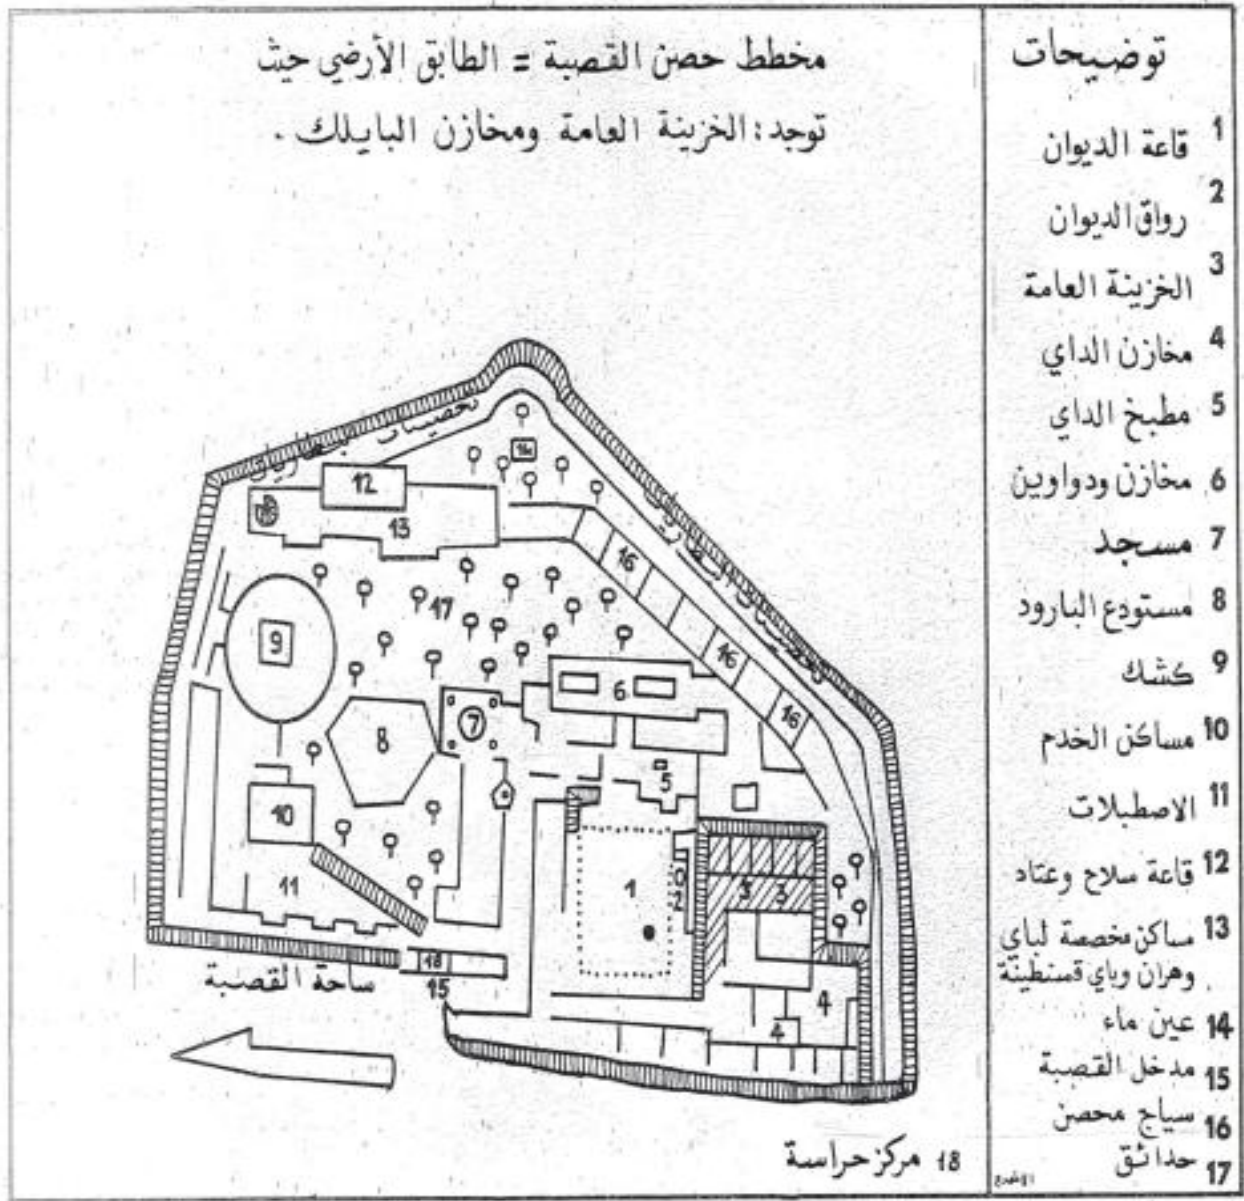 مخطط حصن القصبة = الطابق الأرضي حيث
توجد : الخزينة العامة ومخازن البايلك .
توضيحات
1 قاعة الديوان
2 رواق الديوان
3 الخزينة العامة
4 مخازن الداي
5 مطبخ الداي
6 مخازن ودواوين
7 مسجد
8 مستودع البارود
9 كشك
10 مساكن الخدم
11 الاصطبلات
12 قاعة سلاح وعتاد
13 مساكن مخصصة لباي
وهران وباي قسنطينة
14 عين ماء
15 مدخل القصبة
16 سياج محصن
17 حدائق
18 مركز حراسة
12
13
16
17
9
16
6
16
7
8
5
10
11
1
2
3
3
18
15
4
4
ساحة القصبة